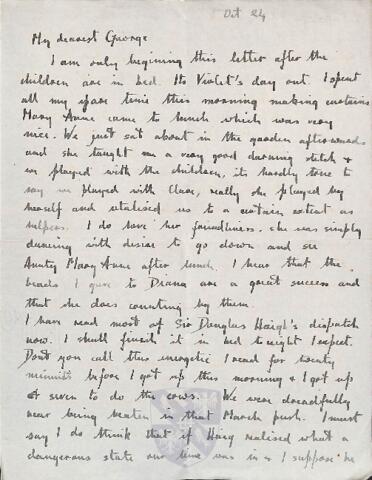 Oct 24
My dearest George
I am only begining this letter after the
children are in bed. Its Violet's day out. I spent
all my spare time this morning making curtains
Mary Anne came to lunch which was very
nice. We just sat about in the garden afterwards
and she taught me a very good darning stitch &
we played with the children, its hardly true to
say we played with Clare, really she played by
herself and utilised us to a certain extent as
helpers. I do love her friendliness. she was simply
dancing with desire to go down and see
Aunty Mary Anne after lunch. I hear that the
beads I gave to Diana are a great success and
that she does counting by them.
I have read most of Sir Douglas Haigh's dispatch
now. I shall finish it in bed tonight I expect.
Dont you call this energetic I read for twenty
minuits before I got up this morning & I got up
at seven to do the cows. We were dreadfully
near being beaten in that March push. I must
say I do think that if Haig realised what a
dangerous state our line was in & I suppose he